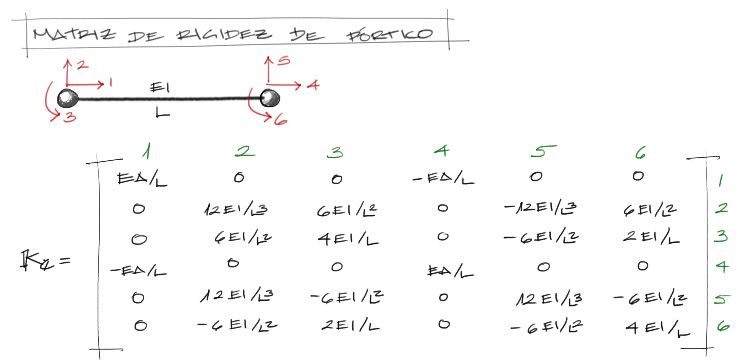 MATRIZ DE RIGIDEZ DE PÓRTICO
2 5
1 EI 4
3 L 6
1 2 3 4 5 6
EA/L 0 0 -EA/L 0 0 1
0 12EI/L³ 6EI/L² 0 -12EI/L³ 6EI/L² 2
0 6EI/L² 4EI/L 0 -6EI/L² 2EI/L 3
Ke =
-EA/L 0 0 EA/L 0 0 4
0 12EI/L³ -6EI/L² 0 12EI/L³ -6EI/L² 5
0 -6EI/L² 2EI/L 0 -6EI/L² 4EI/L 6